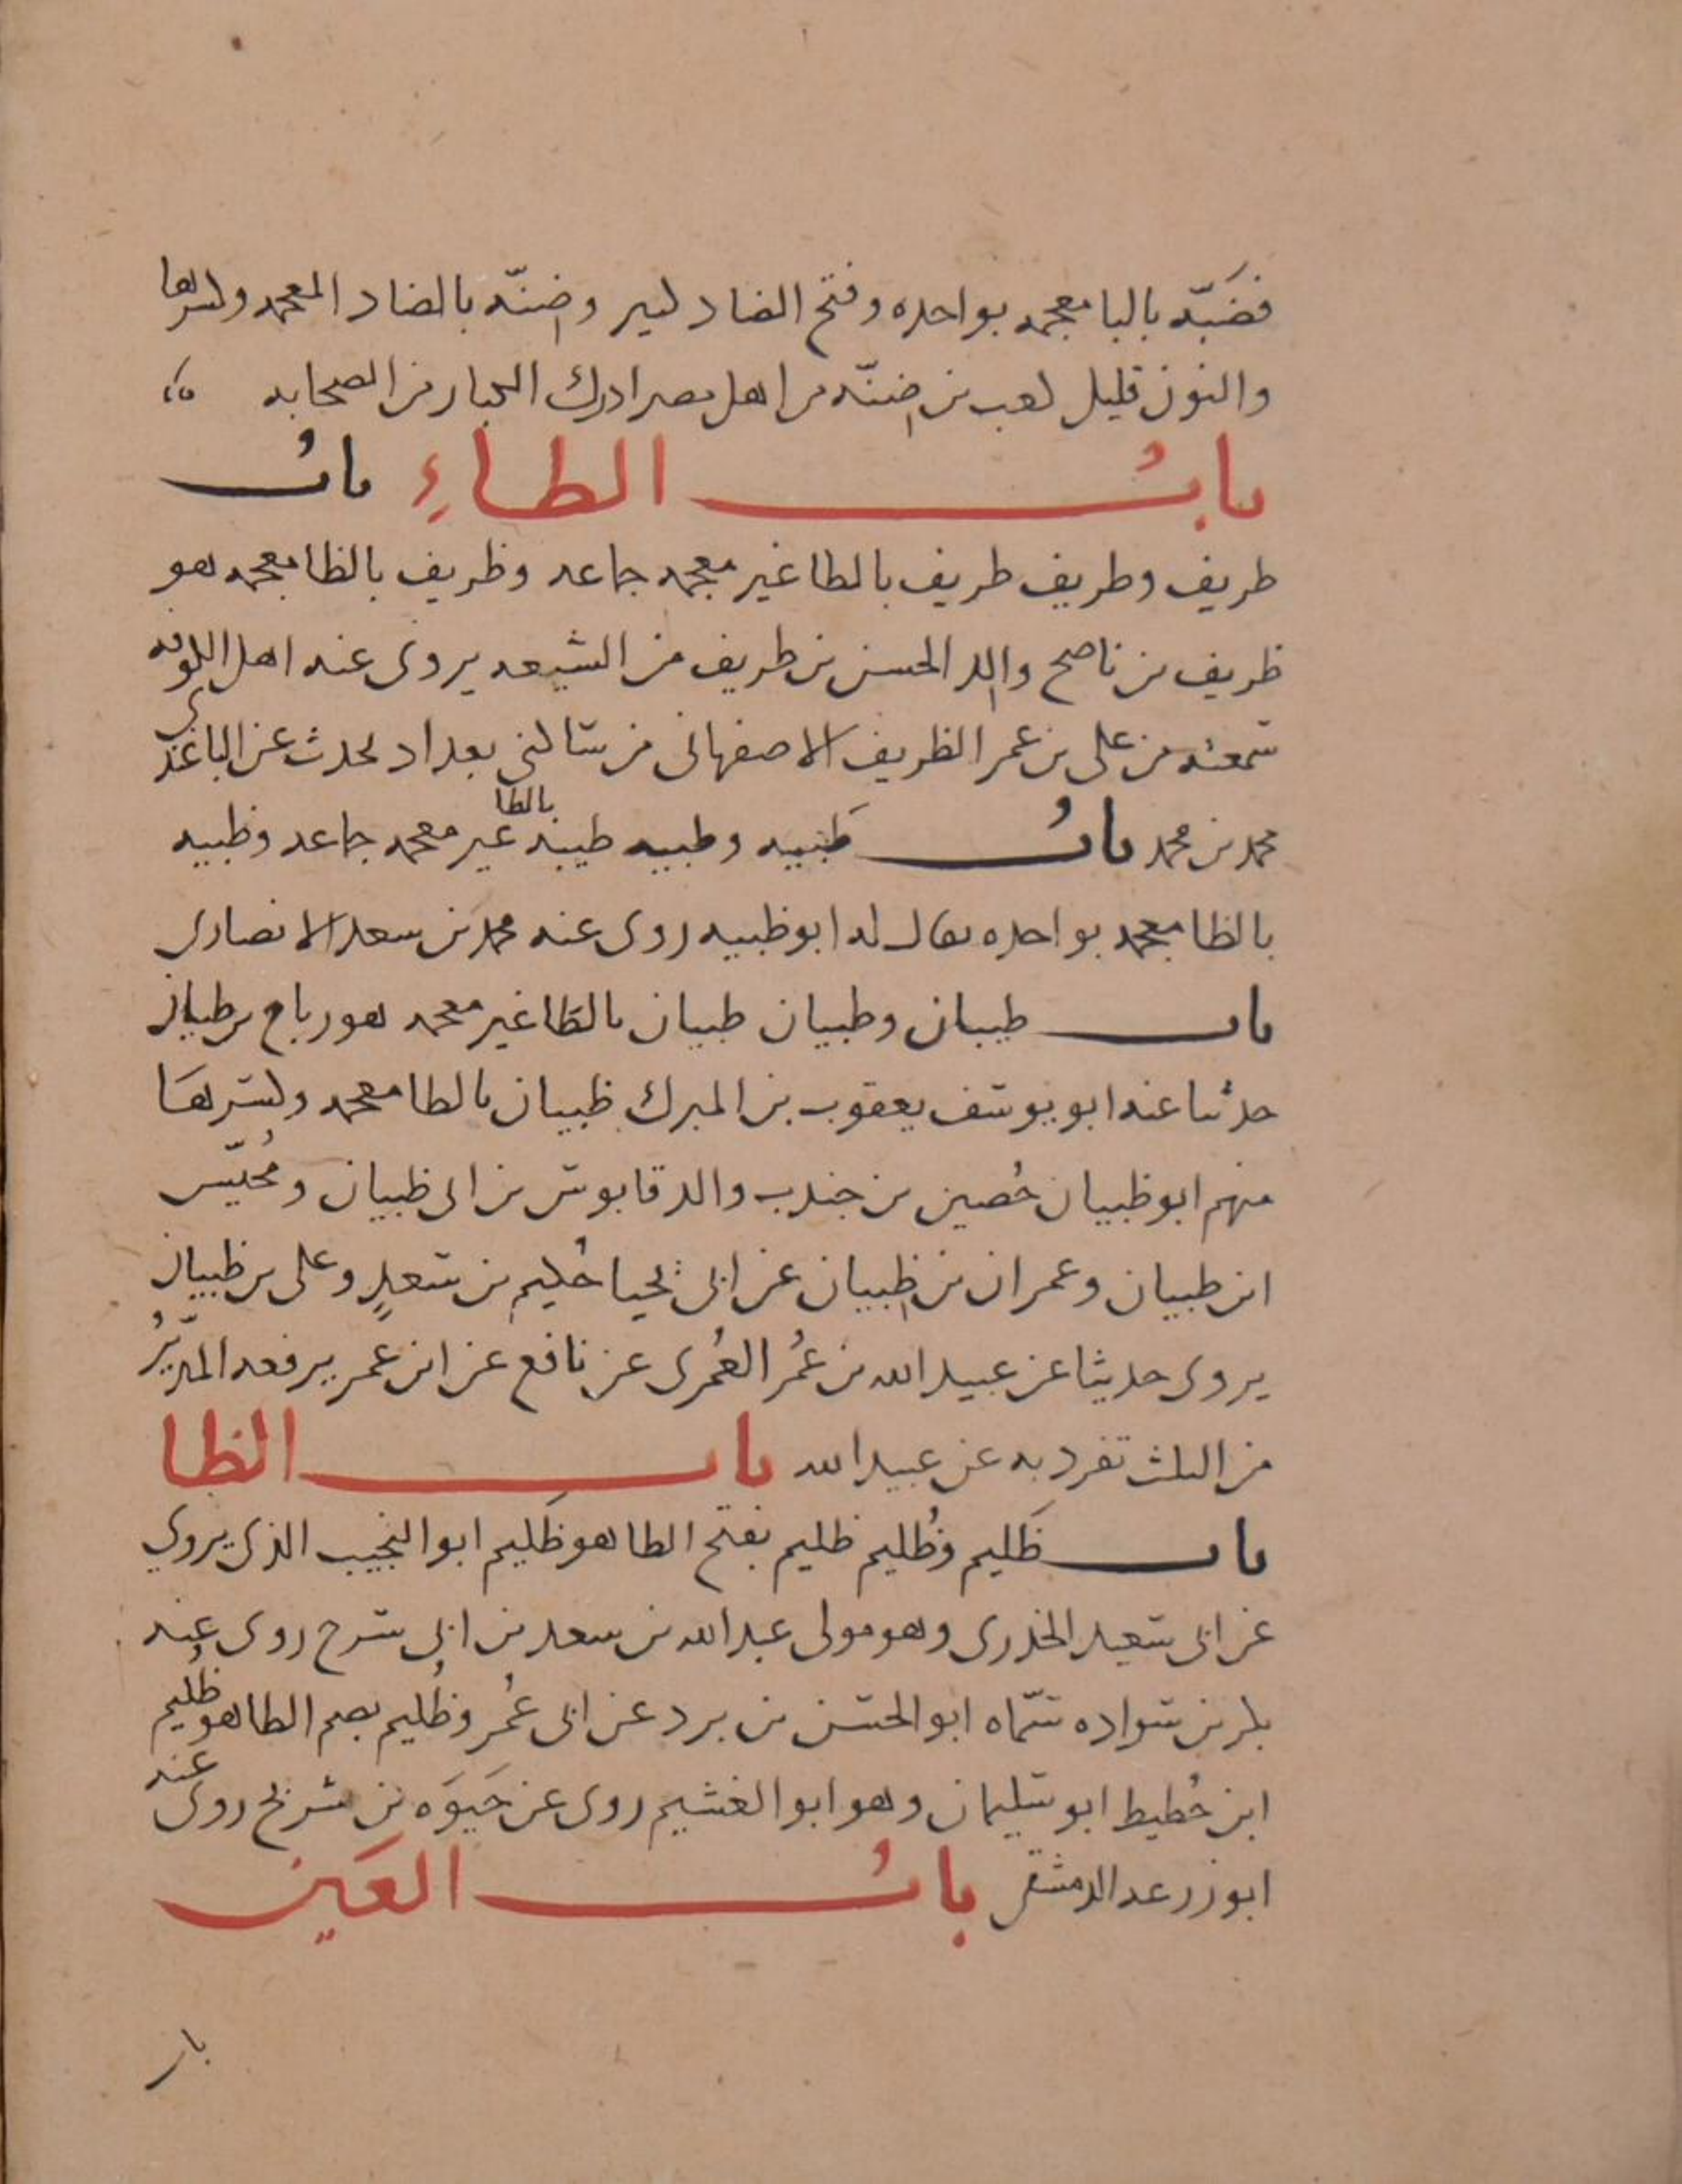 فضَبّه بالبا معجمه بواحده وفتح الضاد كبير وضنّه بالضاد المعجمه وكسرها
والنون قليل كعب بن ضنّه من اهل مصر ادرك الكبار من الصحابه
بابُ الطاءِ بابُ
طريف وظريف طريف بالطا غير معجمه جماعه وظريف بالظا معجمه هو
ظريف بن ناصح والد الحسن بن طريف من الشيعه يروى عنه اهل الكوفه
سمعته من على بن عمر الظريف الاصفهانى من ساكنى بغداد يحدث عن الباغندى
محمد بن محمد بابُ طَيبه وطبيه طيبه بالطا غير معجمه جماعه وظبيه
بالظا معجمه بواحده يقال له ابو ظبيه روى عنه محمد بن سعد الانصارى
باب طيبان وظبيان طيبان بالطا غير معجمه هو رباح بن طيبان
حدثنا عنه ابو يوسف يعقوب بن المبرك ظبيان بالظا معجمه وكسرها
منهم ابو ظبيان حُصين بن جندب والد قابوس بن ابى ظبيان ومُخيّس
ابن ظبيان وعمران بن ظبيان عن ابى تحيا حُكيم بن سعدٍ وعلى بن ظبيان
يروى حديثا عن عبيد الله بن عُمر العُمرى عن نافع عن ابن عمر يرفعه المدبّرُ
من الثلث تفرد به عن عبيد الله باب الظا
باب ظَليم وظُليم ظليم بفتح الظا هو ظَليم ابو النجيب الذى يروى
عن ابى سعيد الخدرى وهو مولى عبد الله بن سعد بن ابى سرح روى عنه
بكر بن سواده سمّاه ابو الحسن بن برد عن ابى عُمر وظُليم بضم الظا هو ظُليم
ابن حُطيط ابو سليمان وهو ابو الغشيم روى عن حَيوَه بن شريح روى عنه
ابو زرعه الدمشقى بابُ العَين
باب